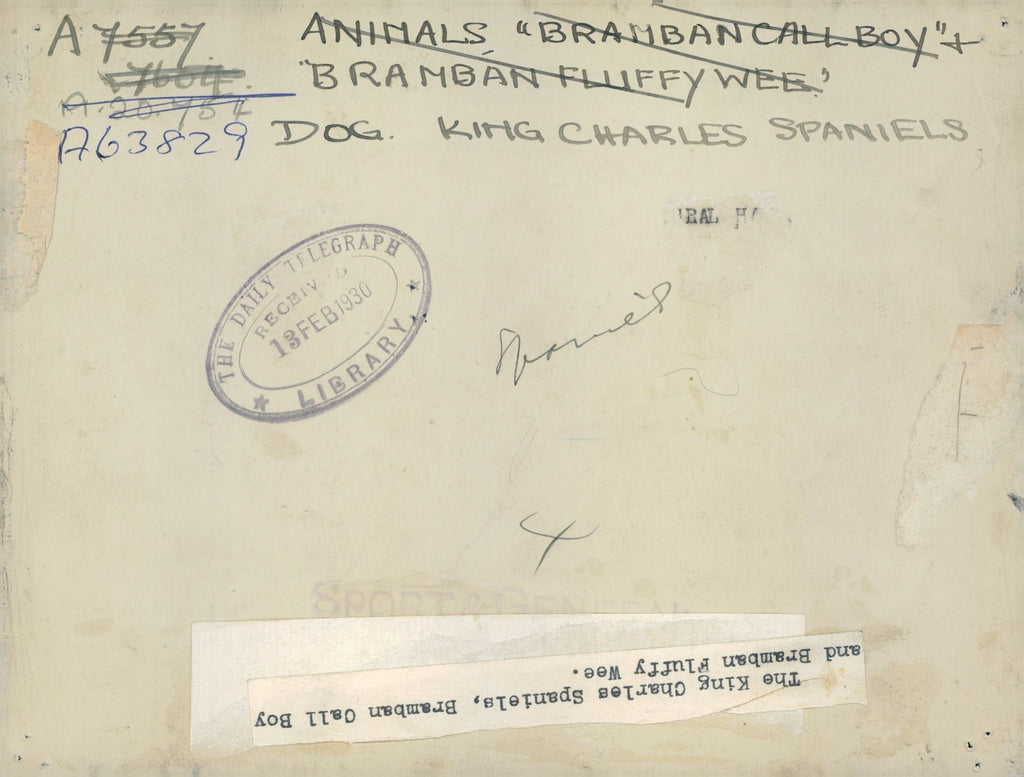 A 7557 ANIMALS "BRAMBAN CALL BOY" +
"BRAMBAN FLUFFY WEE."
A. 20.754
A63829 DOG. KING CHARLES SPANIELS
THE DAILY TELEGRAPH
RECEIVED
13 FEB 1930
LIBRARY
Spaniels
SPORT & GENERAL
The King Charles Spaniels, Bramban Call Boy
and Bramban Fluffy Wee.